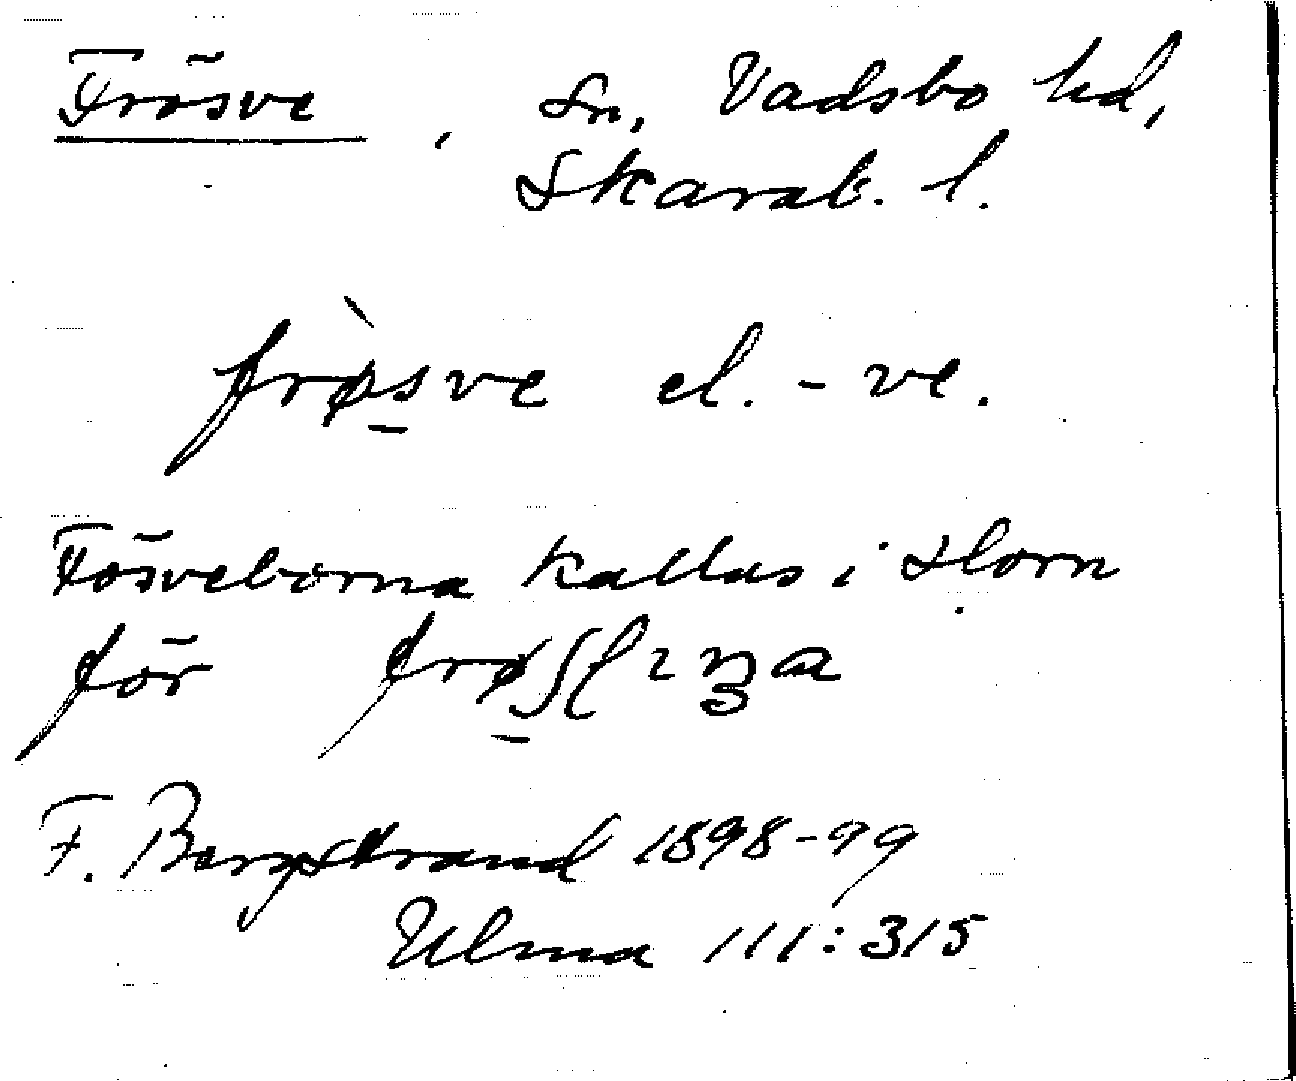 Frösve, Sn, Vadsbo hd,
Skarab. l.
frø̀s̠ve el. -ve.
Fösveborna kallas i Horn
för
F. Bergstrand 1898-99
Ulma 111:315